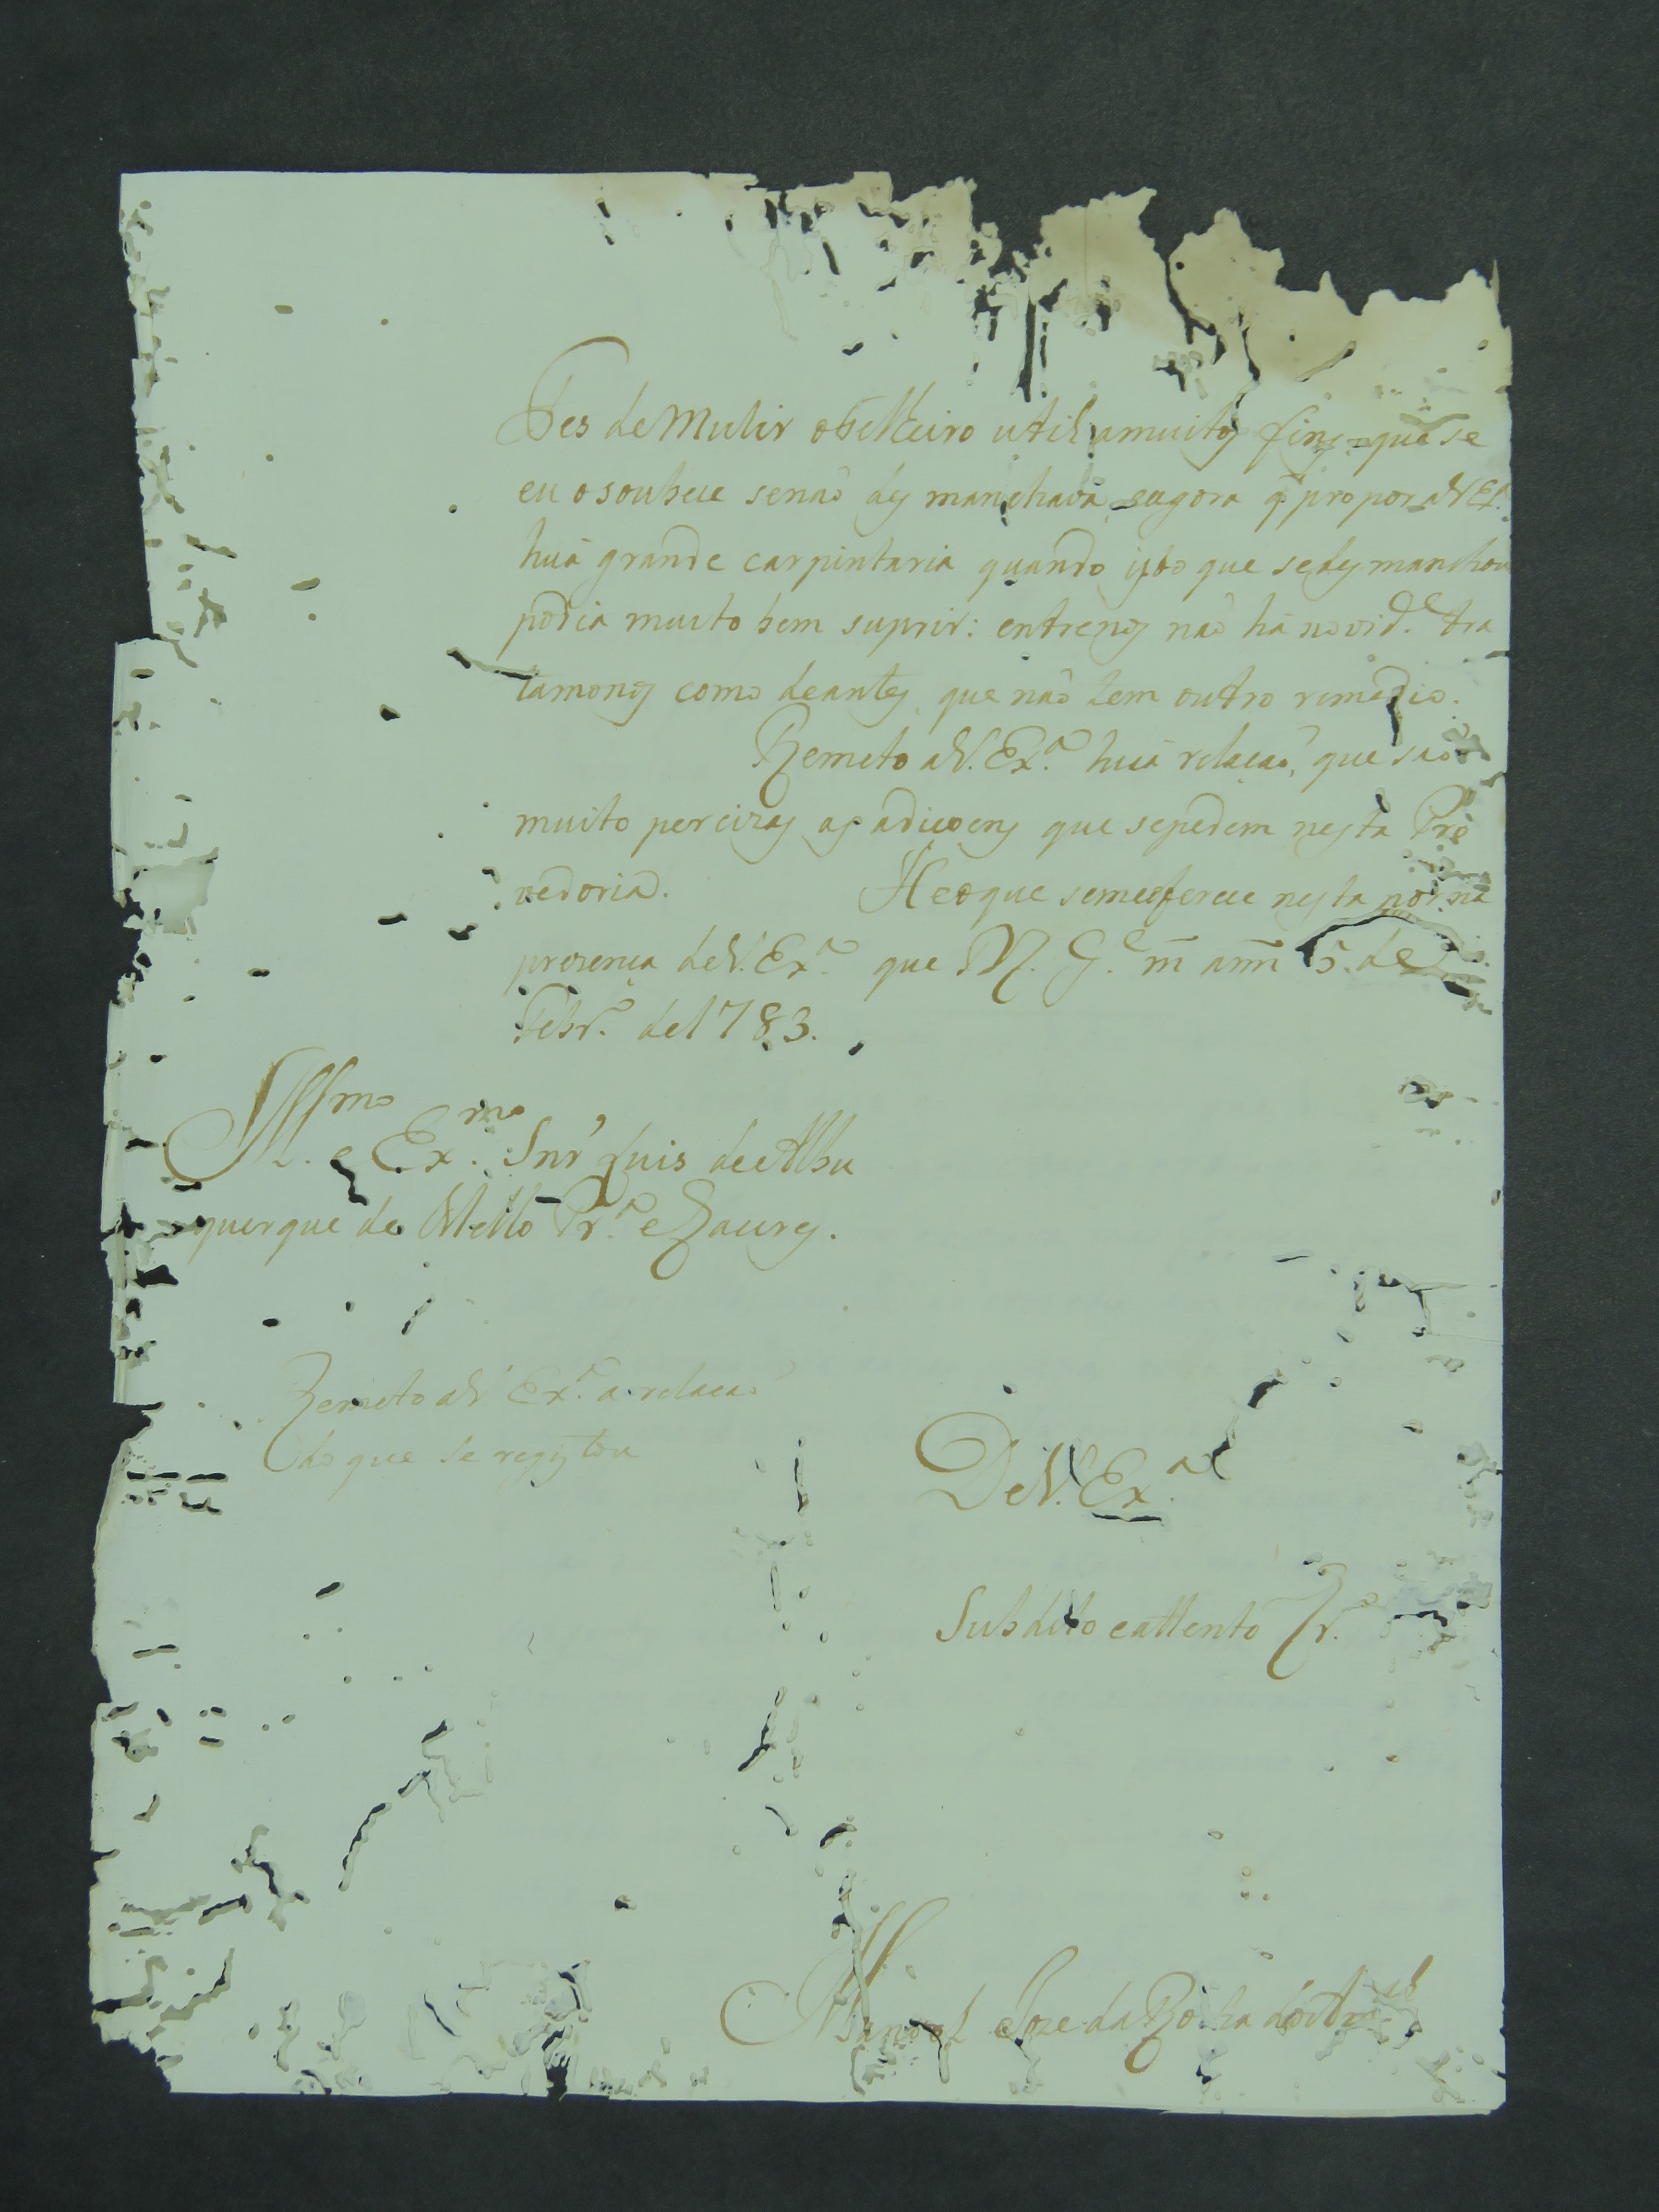 des de Mulir o telheiro util amuitos fins que se
eu o soubece senaõ des manchava, e agora q̃ propor a V Ex.ª
huã grande carpintaria quando isto que se desmanchou
podia muito bem suprir: entrenos naõ há novid.e tra
tamonos como deantes, que naõ tem outro remedio.
Remeto a V. Ex.ª huã relaçaõ, que saõ
muito percizas as adicoens que sepedem nesta Pro
vedoria. He o que se me oferece nesta por na
prezença de V. Ex.ª que N. G.e m̃ ann̄ 5. de
Febr.º de 1783.
Ill.mo e Ex.mo Snr' Luis de Albu
querque de Mello Pr.ª e Caceres.
Remeto a V Ex.ª a relacaõ
do que se registou
De V. Ex.ª
Subdito e attento Cr.º
Manoel Joze da Rocha do